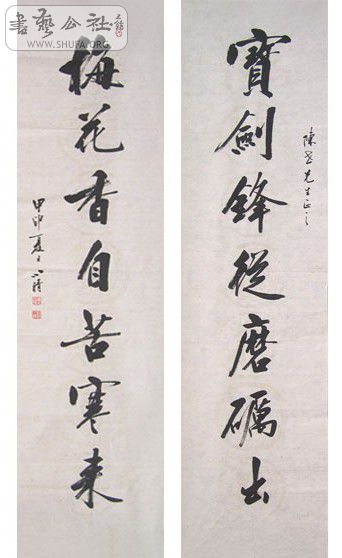 寶劍鋒從磨礪出
先生正之
梅花香自苦寒來
甲申夏日
書藝公社
WWW.SHUFA.ORG